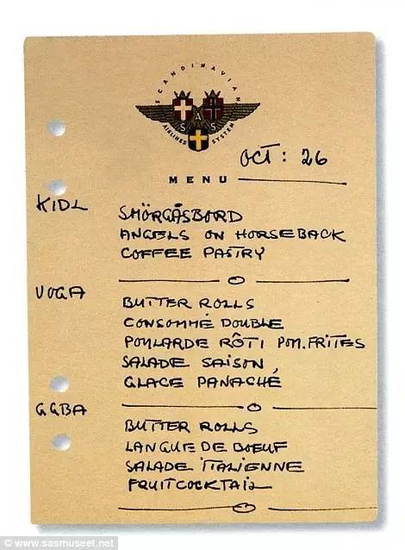 SCANDINAVIAN
S A S
AIRLINES SYSTEM
OCT: 26
MENU
KIDL
SMÖRGÅSBORD
ANGELS ON HORSEBACK
COFFEE PASTRY
VOGA
BUTTER ROLLS
CONSOMMÉ DOUBLE
POULARDE RÔTI POM. FRITES
SALADE SAISON
GLACE PANACHÉ
GGBA
BUTTER ROLLS
LANGUE DE BOEUF
SALADE ITALIENNE
FRUITCOCKTAIL
© www.sasmuseet.net